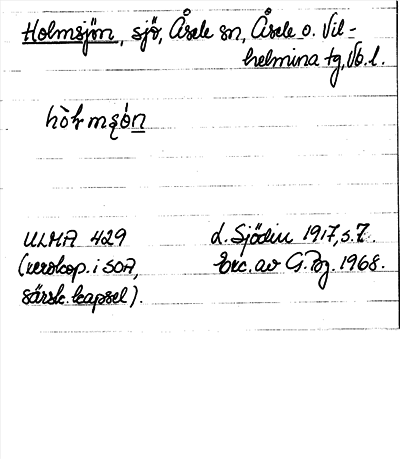 Holmsjön, sjö, Åsele sn, Åsele o. Vil-
helmina tg, Vb. l.
ULMA 429 L. Sjödin 1917, s. 7.
(xerokop. i SOA, Exc. av G. Pg. 1968.
särsk. kapsel).